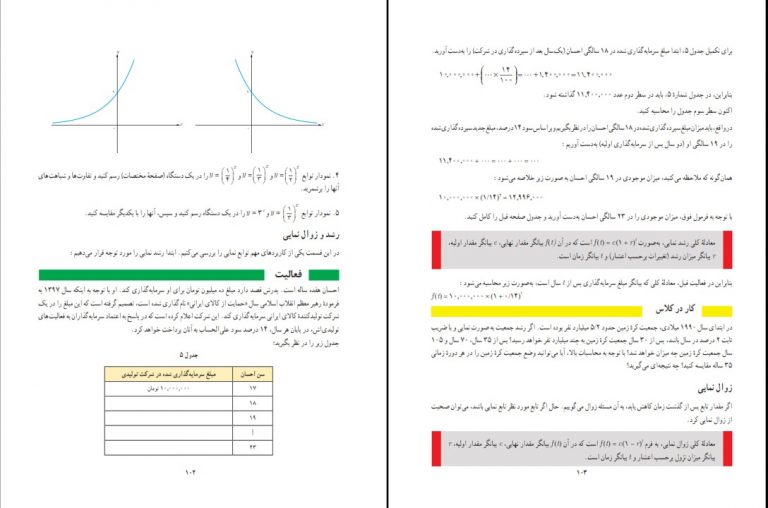 ۴. نمودار توابع y = (۱/۲)^x و y = (۱/۳)^x و y = (۱/۴)^x را در یک دستگاه (صفحهٔ مختصات) رسم کنید و تفاوت‌ها و شباهت‌های
آنها را برشمرید.
۵. نمودار توابع y = (۱/۳)^x و y = ۳^x را در یک دستگاه رسم کنید و سپس، آنها را با یکدیگر مقایسه کنید.
رشد و زوال نمایی
در این قسمت یکی از کاربردهای مهم توابع نمایی را بررسی می‌کنیم. ابتدا رشد نمایی را مورد توجه قرار می‌دهیم :
فعالیت
احسان هفده ساله است. پدرش قصد دارد مبلغ ده میلیون تومان برای او سرمایه‌گذاری کند. او با توجه به اینکه سال ۱۳۹۷ به
فرمودهٔ رهبر معظم انقلاب اسلامی سال «حمایت از کالای ایرانی» نام‌گذاری شده است، تصمیم گرفته است که این مبلغ را در یک
شرکت تولیدکنندهٔ کالای ایرانی سرمایه‌گذاری کند. این شرکت اعلام کرده است که در پاسخ به اعتماد سرمایه‌گذاران به فعالیت‌های
تولیدی‌اش، در پایان هر سال، ۱۴ درصد سود علی‌الحساب به آنان پرداخت خواهد کرد.
جدول زیر را در نظر بگیرید:
جدول ۵
سن احسان مبلغ سرمایه‌گذاری شده در شرکت تولیدی
۱۷ ۱۰,۰۰۰,۰۰۰ تومان
۱۸
۱۹
⁞
۲۳
۱۰۲
برای تکمیل جدول ۵، ابتدا مبلغ سرمایه‌گذاری شده در ۱۸ سالگی احسان (یک سال بعد از سپرده‌گذاری در شرکت) را به‌دست آورید.
۱۰,۰۰۰,۰۰۰ + (... × ۱۴/۱۰۰) = ... + ۱,۴۰۰,۰۰۰ = ۱۱,۴۰۰,۰۰۰
بنابراین، در جدول شمارهٔ ۵، باید در سطر دوم عدد ۱۱,۴۰۰,۰۰۰ گذاشته شود.
اکنون سطر سوم جدول را محاسبه کنید.
در واقع، باید میزان مبلغ سپرده‌گذاری شده در ۱۸ سالگی احسان را در نظر بگیریم و بر اساس سود ۱۴ درصد، مبلغ جدید سپرده‌گذاری شده
را در ۱۹ سالگی او (دو سال پس از سرمایه‌گذاری اولیه) به‌دست آوریم :
۱۱,۴۰۰,۰۰۰ + ... = ... + ... = ...
همان‌گونه که ملاحظه می‌کنید، میزان موجودی در ۱۹ سالگی احسان به‌صورت زیر خلاصه می‌شود :
۱۰,۰۰۰,۰۰۰ × (۱/۱۴)^۲ = ۱۲,۹۹۶,۰۰۰
با توجه به فرمول فوق، میزان موجودی را در ۲۳ سالگی احسان به‌دست آورید و جدول صفحه قبل را کامل کنید.
معادلهٔ کلی رشد نمایی، به‌صورت f(t) = c(۱ + r)^t است که در آن f(t) بیانگر مقدار نهایی، c بیانگر مقدار اولیه،
r بیانگر میزان رشد (تغییرات برحسب اعشار) و t بیانگر زمان است.
بنابراین در فعالیت قبل، معادلهٔ کلی که بیانگر مبلغ سرمایه‌گذاری پس از t سال است، به‌صورت زیر محاسبه می‌شود :
f(t) = ۱۰,۰۰۰,۰۰۰ × (۱ + ۰/۱۴)^t
کار در کلاس
در ابتدای سال ۱۹۹۰ میلادی، جمعیت کرهٔ زمین حدود ۵/۲ میلیارد نفر بوده است. اگر رشد جمعیت به‌صورت نمایی و با ضریب
ثابت ۲ درصد در سال باشد، پس از ۳۰ سال جمعیت کرهٔ زمین به چند میلیارد نفر خواهد رسید؟ پس از ۳۵ سال، ۷۰ سال و ۱۰۵
سال جمعیت کرهٔ زمین چه میزان خواهد شد؟ با توجه به محاسبات بالا، آیا می‌توانید وضع جمعیت کرهٔ زمین را در هر دورهٔ زمانی
۳۵ ساله مقایسه کنید؟ چه نتیجه‌ای می‌گیرید؟
زوال نمایی
اگر مقدار تابع پس از گذشت زمان کاهش یابد، به آن مسئله زوال می‌گوییم. حال اگر تابع مورد نظر تابع نمایی باشد، می‌توان صحبت
از زوال نمایی کرد.
معادلهٔ کلی زوال نمایی، به فرم f(t) = c(۱ − r)^t است که در آن f(t) بیانگر مقدار نهایی، c بیانگر مقدار اولیه، r
بیانگر میزان نزول برحسب اعشار و t بیانگر زمان است.
۱۰۳